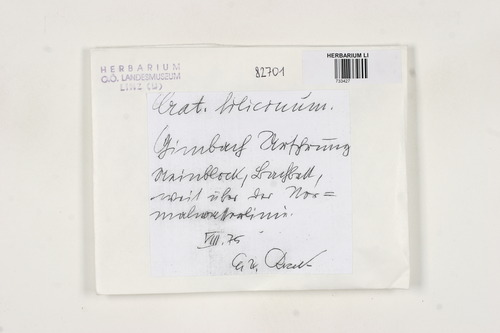 HERBARIUM
O.Ö. LANDESMUSEUM
LINZ (W)
82701
HERBARIUM LI
Crat. filicinum.
Gimbach Ursprung
Steinblock, Bachbett,
weit über der Nor=
malwasserlinie.
VIII. 75